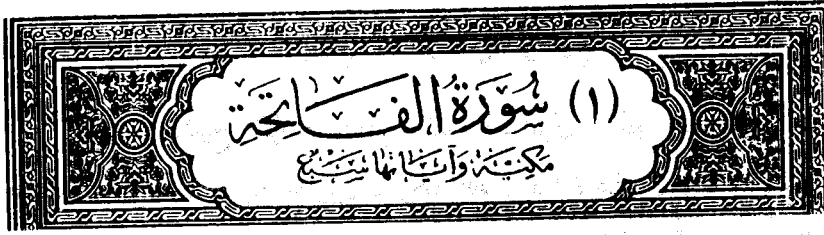 (١) سُورَةُ الفَاتِحَةِ
مَكِيَّة وَآيَاتهَا سَبْعٌ